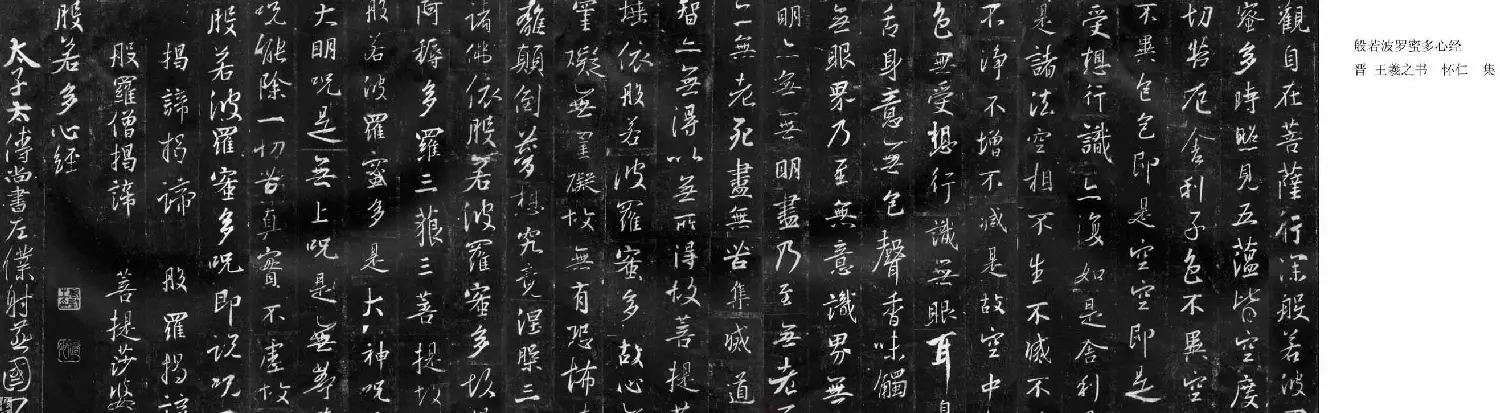 般若波罗蜜多心经
晋 王羲之书 怀仁 集
觀自在菩薩行深般若波
蜜多時照見五蘊皆空度
切苦厄舍利子色不異空
不異色色即是空空即是
受想行識亦復如是舍利
是諸法空相不生不滅不
不淨不增不減是故空中
色無受想行識無眼耳
舌身意無色聲香味觸
無眼界乃至無意識界無
明亦無無明盡乃至無老
亦無老死盡無苦集滅道
智亦無得以無所得故菩提
埵依般若波羅蜜多故心
罣礙無罣礙故無有恐怖
離顛倒夢想究竟涅槃三
諸佛依般若波羅蜜多故
阿耨多羅三藐三菩提故
般若波羅蜜多是大神呪
大明呪是無上呪是無等
呪能除一切苦真實不虛故
般若波羅蜜多呪即說呪
揭諦揭諦 般羅揭諦
般羅僧揭諦 菩提莎婆
般若多心經
太子太傅尚書左僕射燕國